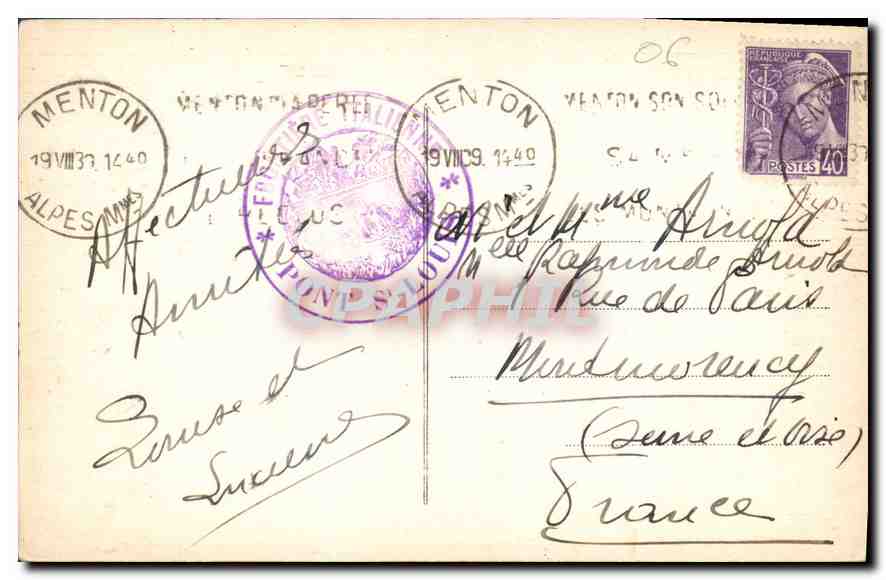 06
RÉPUBLIQUE
FRANÇAISE
POSTES 40
MENTON
19 VIII 39. 14 40
ALPES Mmes
MENTON LA PERLE
MENTON
19 VIII 39. 14 40
MENTON SON SOL
FRONTIÈRE ITALIENNE
PONT St LOUIS
CPAPHIL
Affectueuses
Amitiés
Louise et
Mr et Mme Arnold
Mlle Raymonde Arnold
1 Rue de Paris
Montmorency
(Seine et Oise)
France